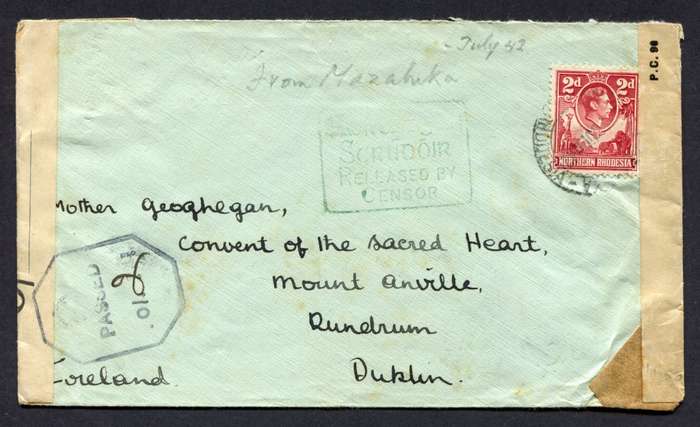 July 42
From Mazabuka
P.C. 90
2d 2d
NORTHERN RHODESIA
SCRÚDÓIR
RELEASED BY
CENSOR
Mother Geoghegan,
Convent of the Sacred Heart,
Mount Anville,
Dundrum
Dublin.
Ireland.
PASSED